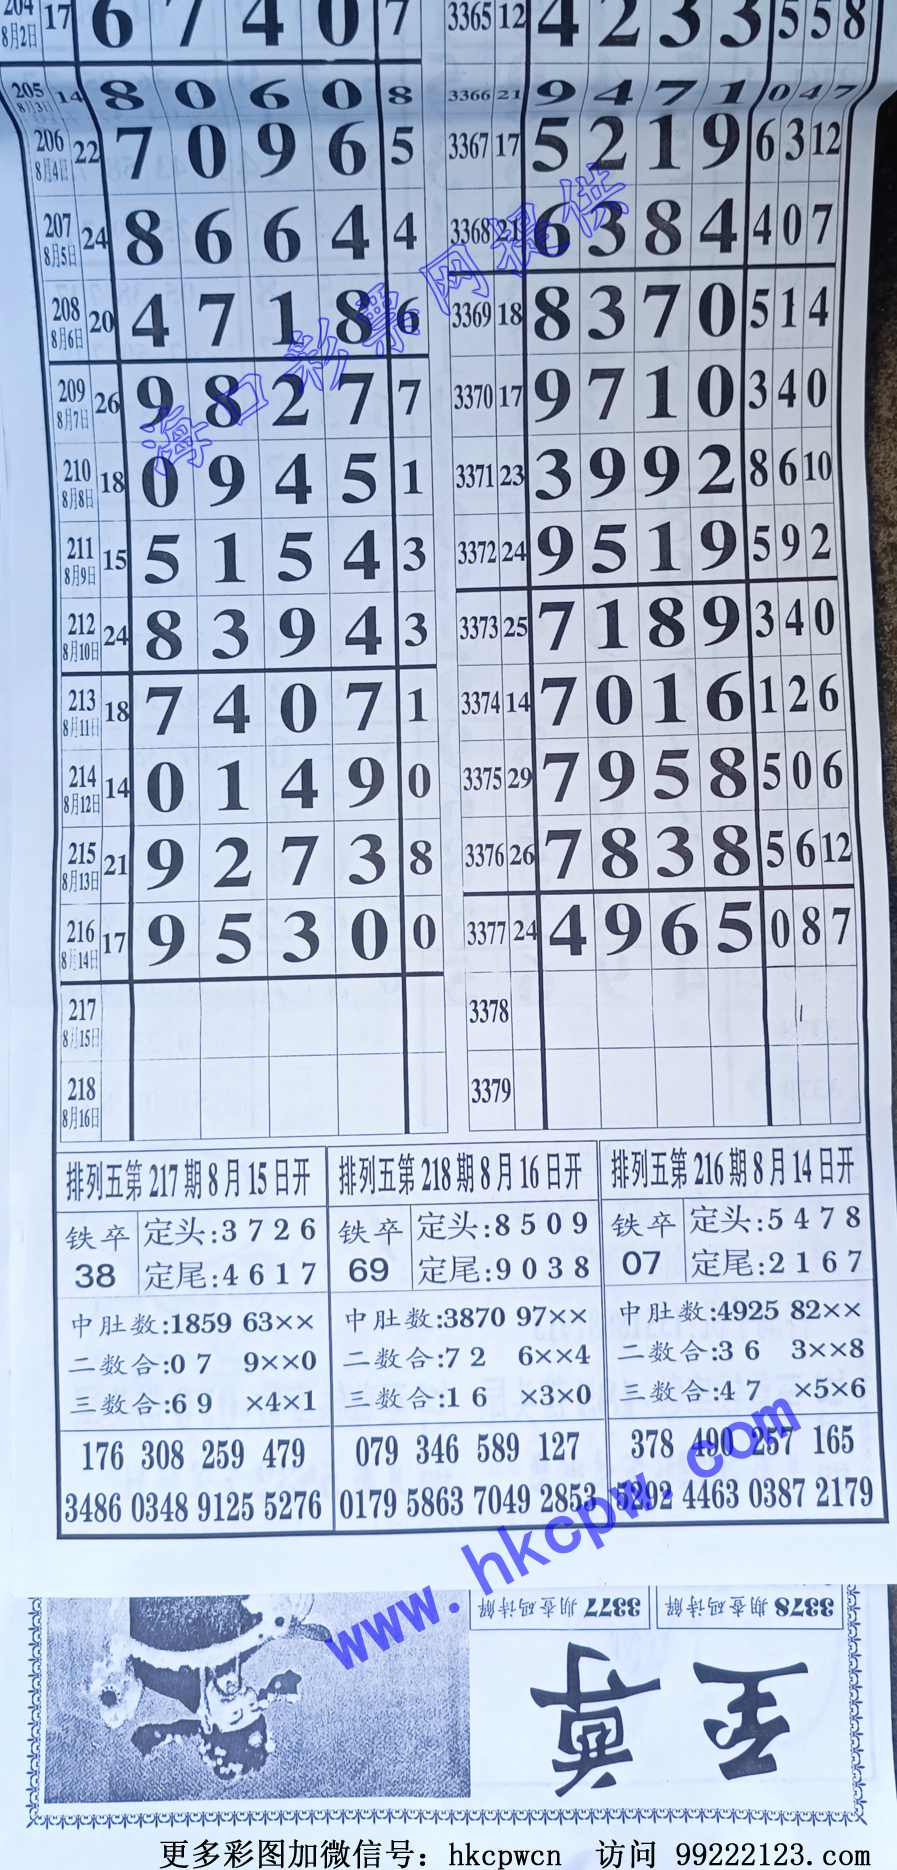 204 8月2日 17 6 7 4 0 7 3365 12 4 2 3 3 5 5 8
205 8月3日 14 8 0 6 0 8 3366 21 9 4 7 1 0 4 7
206 8月4日 22 7 0 9 6 5 3367 17 5 2 1 9 6 3 12
207 8月5日 24 8 6 6 4 4 3368 21 6 3 8 4 4 0 7
208 8月6日 20 4 7 1 8 6 3369 18 8 3 7 0 5 1 4
209 8月7日 26 9 8 2 7 7 3370 17 9 7 1 0 3 4 0
210 8月8日 18 0 9 4 5 1 3371 23 3 9 9 2 8 6 10
211 8月9日 15 5 1 5 4 3 3372 24 9 5 1 9 5 9 2
212 8月10日 24 8 3 9 4 3 3373 25 7 1 8 9 3 4 0
213 8月11日 18 7 4 0 7 1 3374 14 7 0 1 6 1 2 6
214 8月12日 14 0 1 4 9 0 3375 29 7 9 5 8 5 0 6
215 8月13日 21 9 2 7 3 8 3376 26 7 8 3 8 5 6 12
216 8月14日 17 9 5 3 0 0 3377 24 4 9 6 5 0 8 7
217 8月15日 3378
218 8月16日 3379
海口彩票网提供
排列五第217期8月15日开 排列五第218期8月16日开 排列五第216期8月14日开
铁卒 定头:3726 铁卒 定头:8509 铁卒 定头:5478
38 定尾:4617 69 定尾:9038 07 定尾:2167
中肚数:1859 63×× 中肚数:3870 97×× 中肚数:4925 82××
二数合:07 9××0 二数合:72 6××4 二数合:36 3××8
三数合:69 ×4×1 三数合:16 ×3×0 三数合:47 ×5×6
176 308 259 479 079 346 589 127 378 490 257 165
3486 0348 9125 5276 0179 5863 7049 2853 5292 4463 0387 2179
www.hkcpw.com
3377期查码诗解 3378期查码诗解
至尊
更多彩图加微信号：hkcpwcn 访问 99222123.com